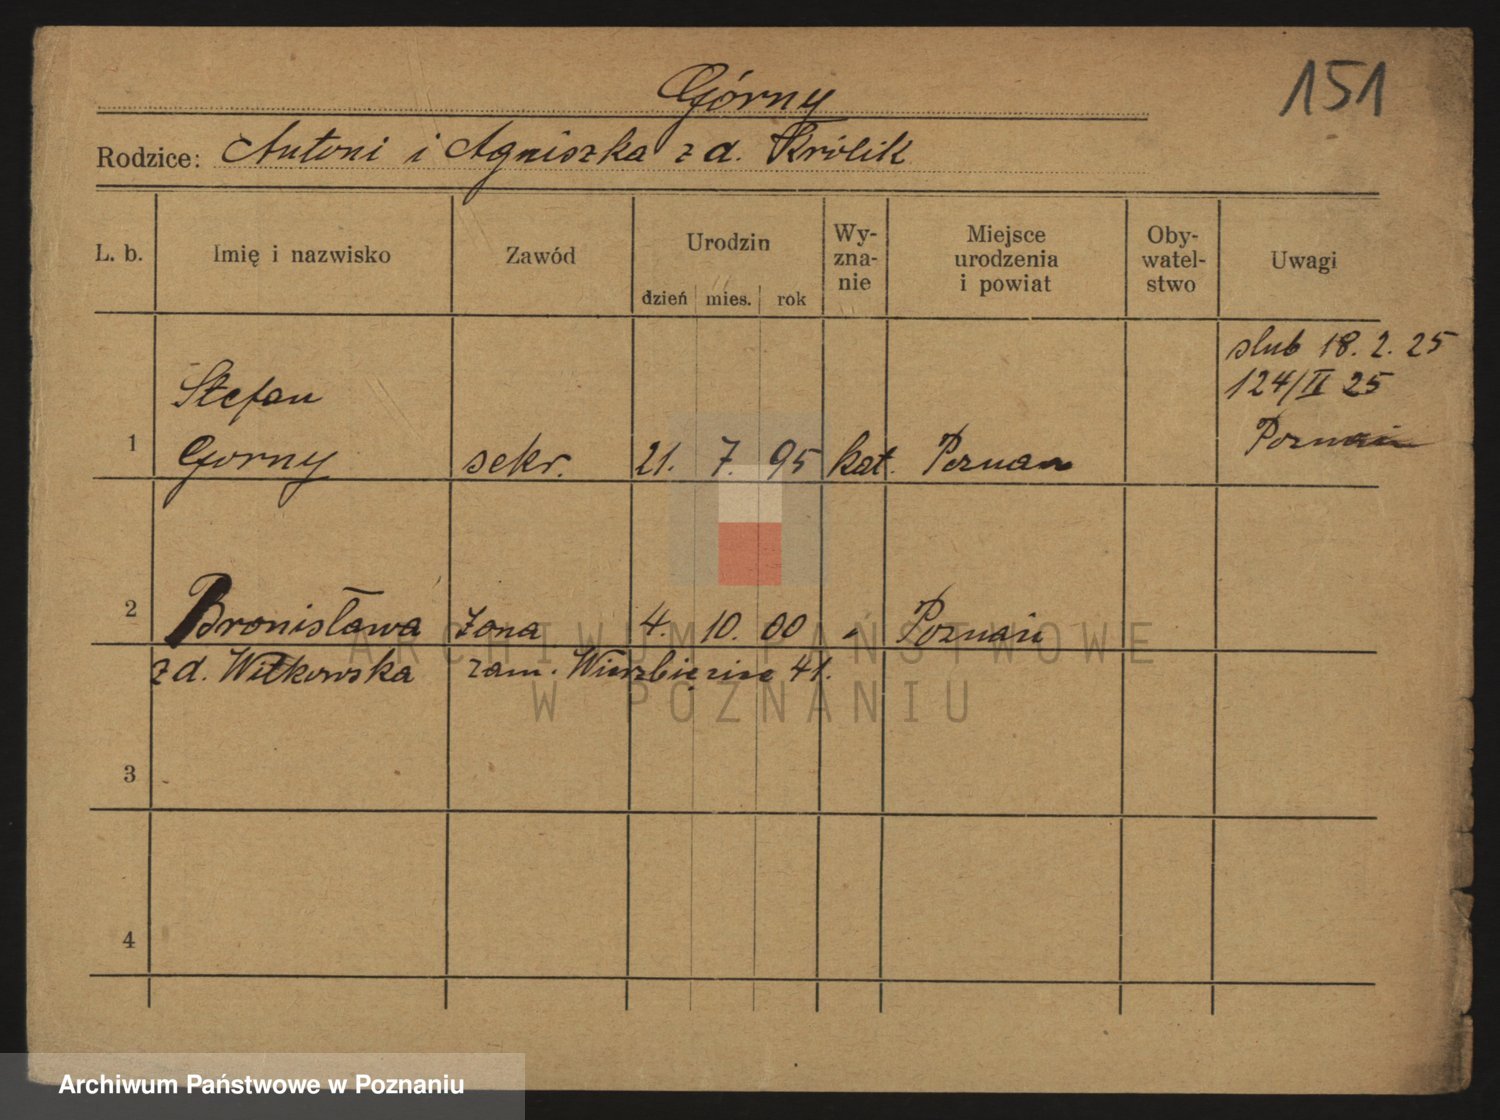 151
Górny
Rodzice: Antoni i Agniszka z d. Królik
L. b. Imię i nazwisko Zawód Urodzin dzień mies. rok Wy-zna-nie Miejsce urodzenia i powiat Oby-watel-stwo Uwagi
slub 18. 2. 25
124/II 25
Poznań
Stefan
1 Gorny sekr. 21. 7. 95 kat. Poznan
2 Bronisława żona 4. 10. 00 " Poznań
z d. Witkowska zam. Wierzbięcice 41.
3
4
ARCHIWUM PAŃSTWOWE
W POZNANIU
Archiwum Państwowe w Poznaniu